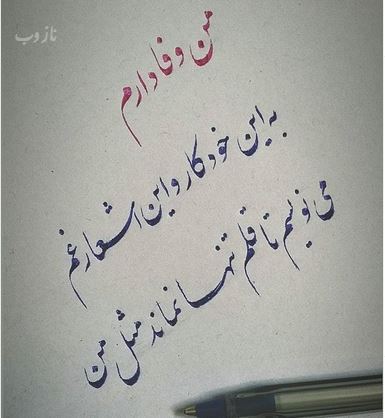 ناز وب
من وفادارم
به این خودکار و این اشعار غم
می نویسم تا قلم تنها نماند مثل من